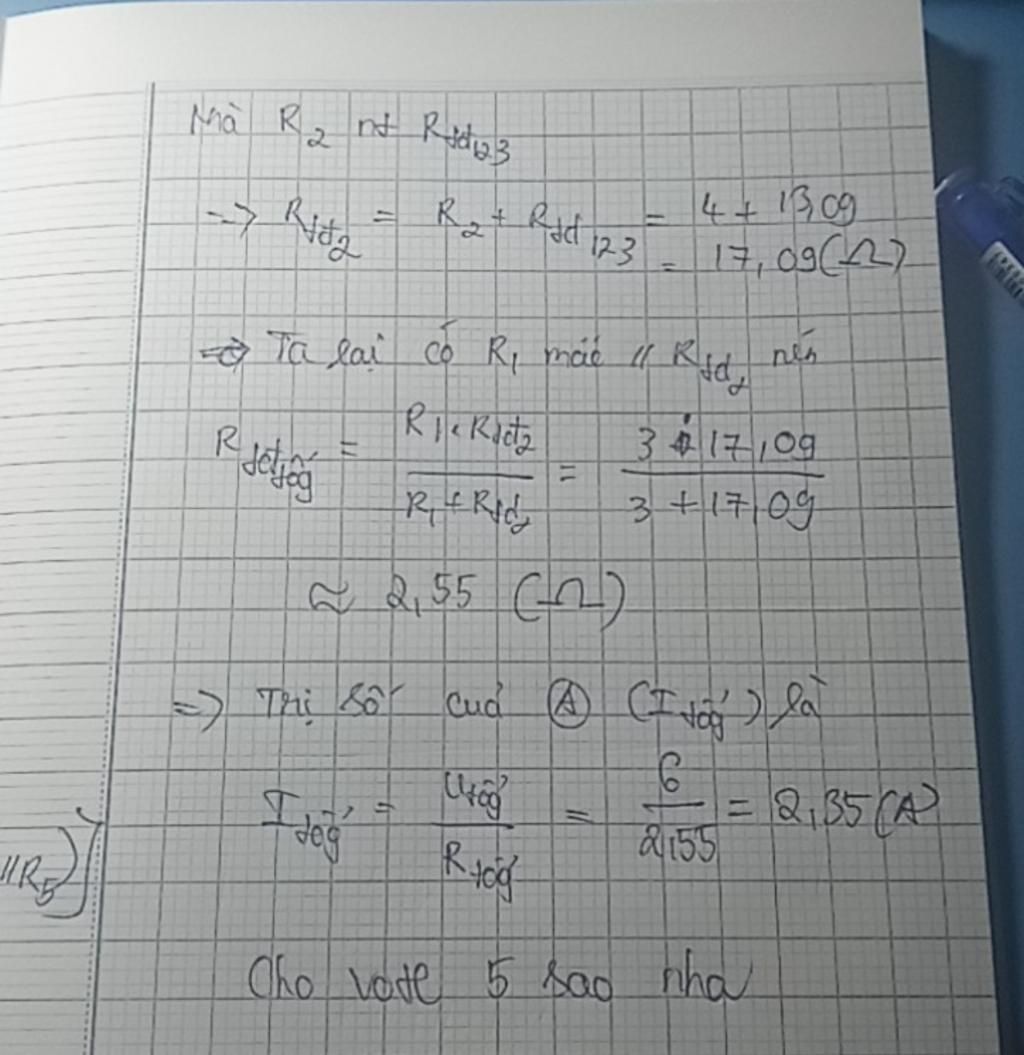 Mà R2 nt Rtđ123
=> Rtđ2 = R2 + Rtđ123 = 4 + 13,09
= 17,09(Ω)
=> Ta lại có R1 mắc // Rtđ2 nên
Rtđtổg = R1.Rtđ2 / R1+Rtđ2 = 3 . 17,09 / 3 + 17,09
≈ 2,55 (Ω)
=> Trị số của Ⓐ (Itổg) là
Itổg = Utổg / Rtổg = 6 / 2,55 = 2,35 (A)
//R5)
Cho vote 5 sao nha